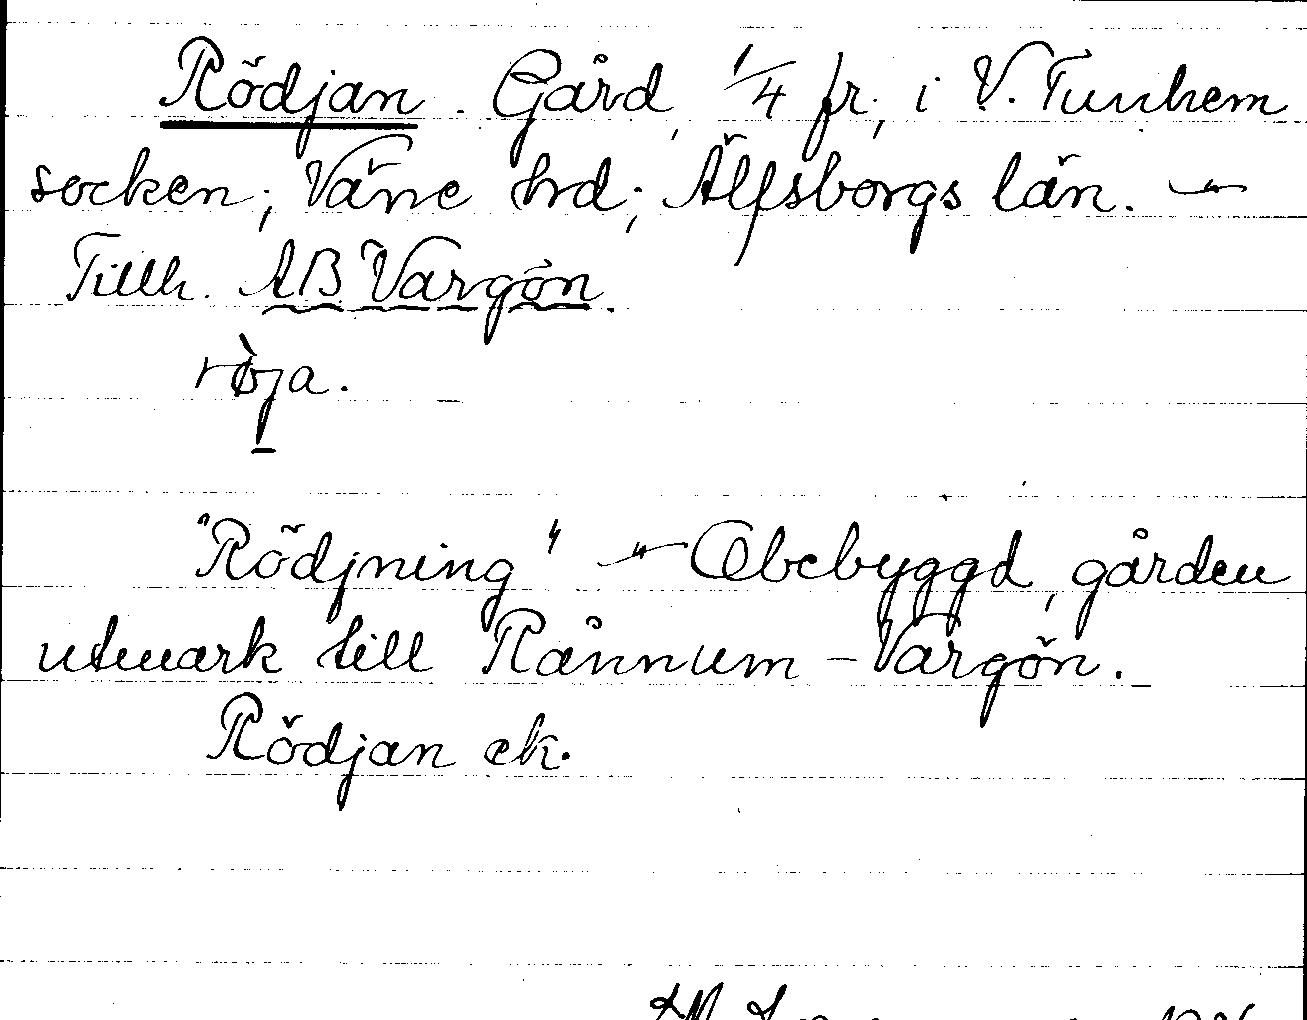 Rödjan. Gård, 1/4 fr, i V. Tunhem
socken; Väne hrd; Älfsborgs län. —
Tillh. AB Vargön.
röja.
"Rödjning" — Obebyggd, gården
utmark till Rånnum - Vargön.
Rödjan ek.